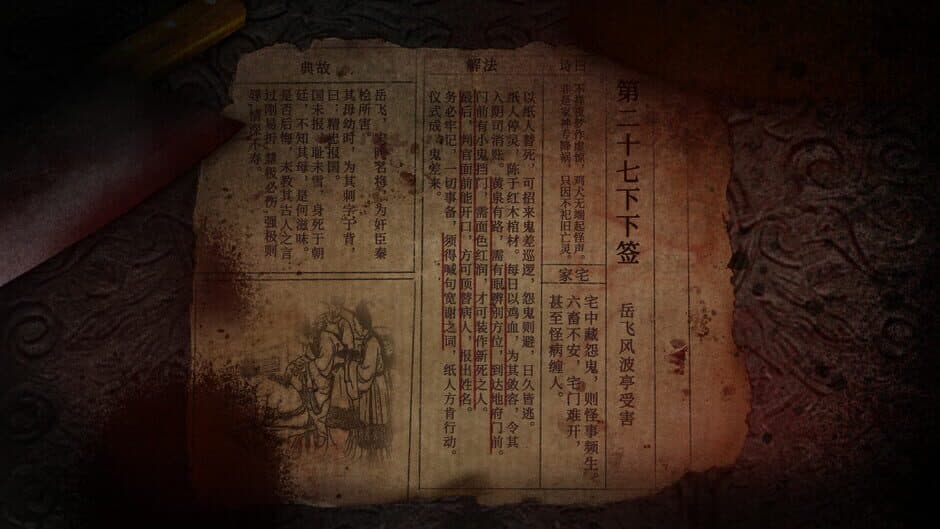 第二十七下下签 岳飞风波亭受害
诗曰
鸡犬无端起怪声。
非是家神专降祸,只因不祀旧亡灵。
家宅
宅中藏怨鬼,则怪事频生。
六畜不安,宅门难开,
甚至怪病缠人。
解法
以纸人替死,可招来鬼差巡逻,怨鬼则避,日久皆逃。
纸人停灵,陈于红木棺材。每日以鸡血,为其敛容,令其
入阴司消账。黄泉有路,需有眼辨别方位,到达地府门前。
门前有小鬼挡门,需面色红润,才可装作新死之人。
最后,判官面前能开口,方可顶替病人,报出姓名。
务必牢记,一切事备,须得喊句宽谢之词,纸人方肯行动。
仪式成,鬼差来。
典故
岳飞,名将,为奸臣秦
桧所害。
其母幼时,为其刺字于背,
曰:精忠报国。
国未报,耻未雪,身死于朝
廷,不知其母,是何滋味。
是否后悔,未教其古人之言
过刚易折,慧极必伤,强极则
辱,情深不寿。